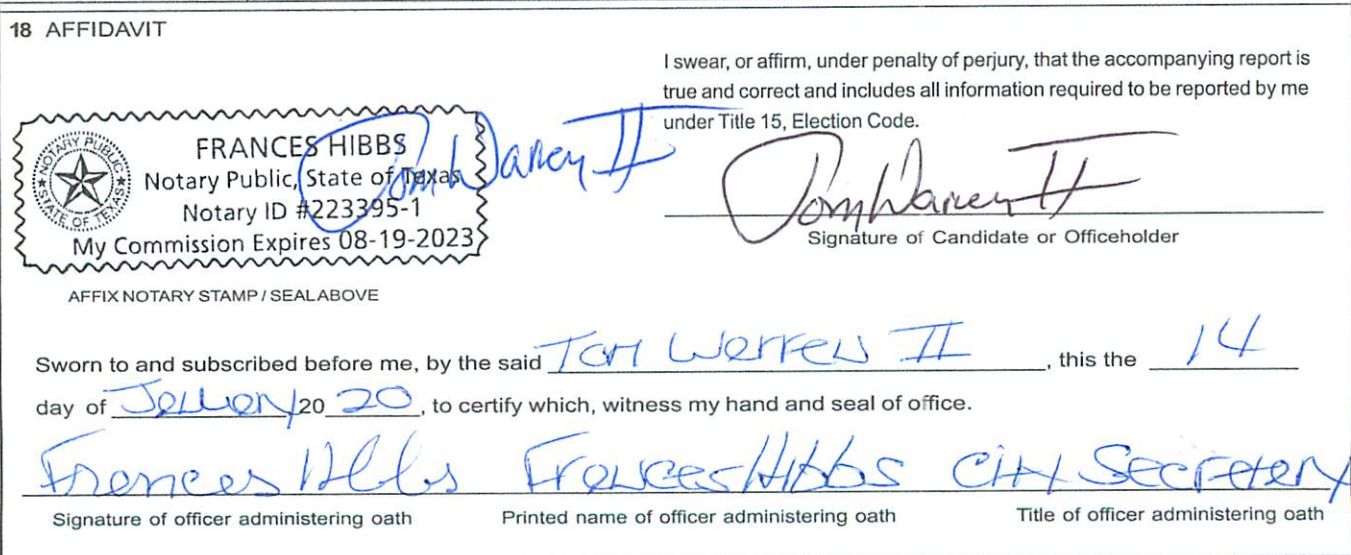 18 AFFIDAVIT
I swear, or affirm, under penalty of perjury, that the accompanying report is
true and correct and includes all information required to be reported by me
under Title 15, Election Code.
NOTARY PUBLIC
STATE OF TEXAS
FRANCES HIBBS
Notary Public, State of Texas
Notary ID #223395-1
My Commission Expires 08-19-2023
Tom Warren II
Tom Warren II
Signature of Candidate or Officeholder
AFFIX NOTARY STAMP / SEAL ABOVE
Sworn to and subscribed before me, by the said Tom Warren II, this the 14
day of January 20 20, to certify which, witness my hand and seal of office.
Frances Hibbs Frances Hibbs City Secretary
Signature of officer administering oath Printed name of officer administering oath Title of officer administering oath